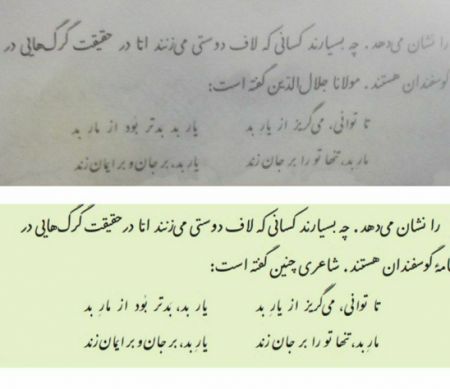 را نشان می‌دهد. چه بسیارند کسانی که لاف دوستی می‌زنند امّا در حقیقت گرگ‌هایی در
گوسفندان هستند. مولانا جلال‌الدّین گفته است:
تا توانی، می‌گریز از یارِ بد یار بد بدتر بُوَد از مار بد
مار بد، تنها تو را بر جان زند یار بد، بر جان و بر ایمان زند
را نشان می‌دهد. چه بسیارند کسانی که لاف دوستی می‌زنند امّا در حقیقت گرگ‌هایی در
گوسفندان هستند. شاعری چنین گفته است:
تا توانی، می‌گریز از یارِ بد یار بد، بَدتر بُوَد از مارِ بد
مارِ بد، تنها تو را بر جان زند یارِ بد، بر جان و بر ایمان زند